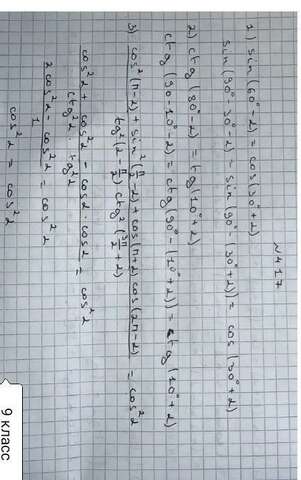 №417
1) sin (60°-2) = cos(30°+2)
sin(90°-30°-2) = sin(90°-(30°+2)) = cos(30°+2)
2) ctg (80°-2) = tg(10°+2)
ctg (90-10°-2) = ctg(90°-(10°+2)) = ctg(10°+2)
3) cos²(π-2) + sin²(π/2-2) + cos(π+2) cos(2π-2) / tg²(2-π/2) ctg²(3π/2+2) = cos²2
cos²2 + cos²2 - cos2 · cos2 / ctg²2 · tg²2 = cos²2
2cos²2 - cos²2 / 1 = cos²2
cos²2 = cos²2
9 класс